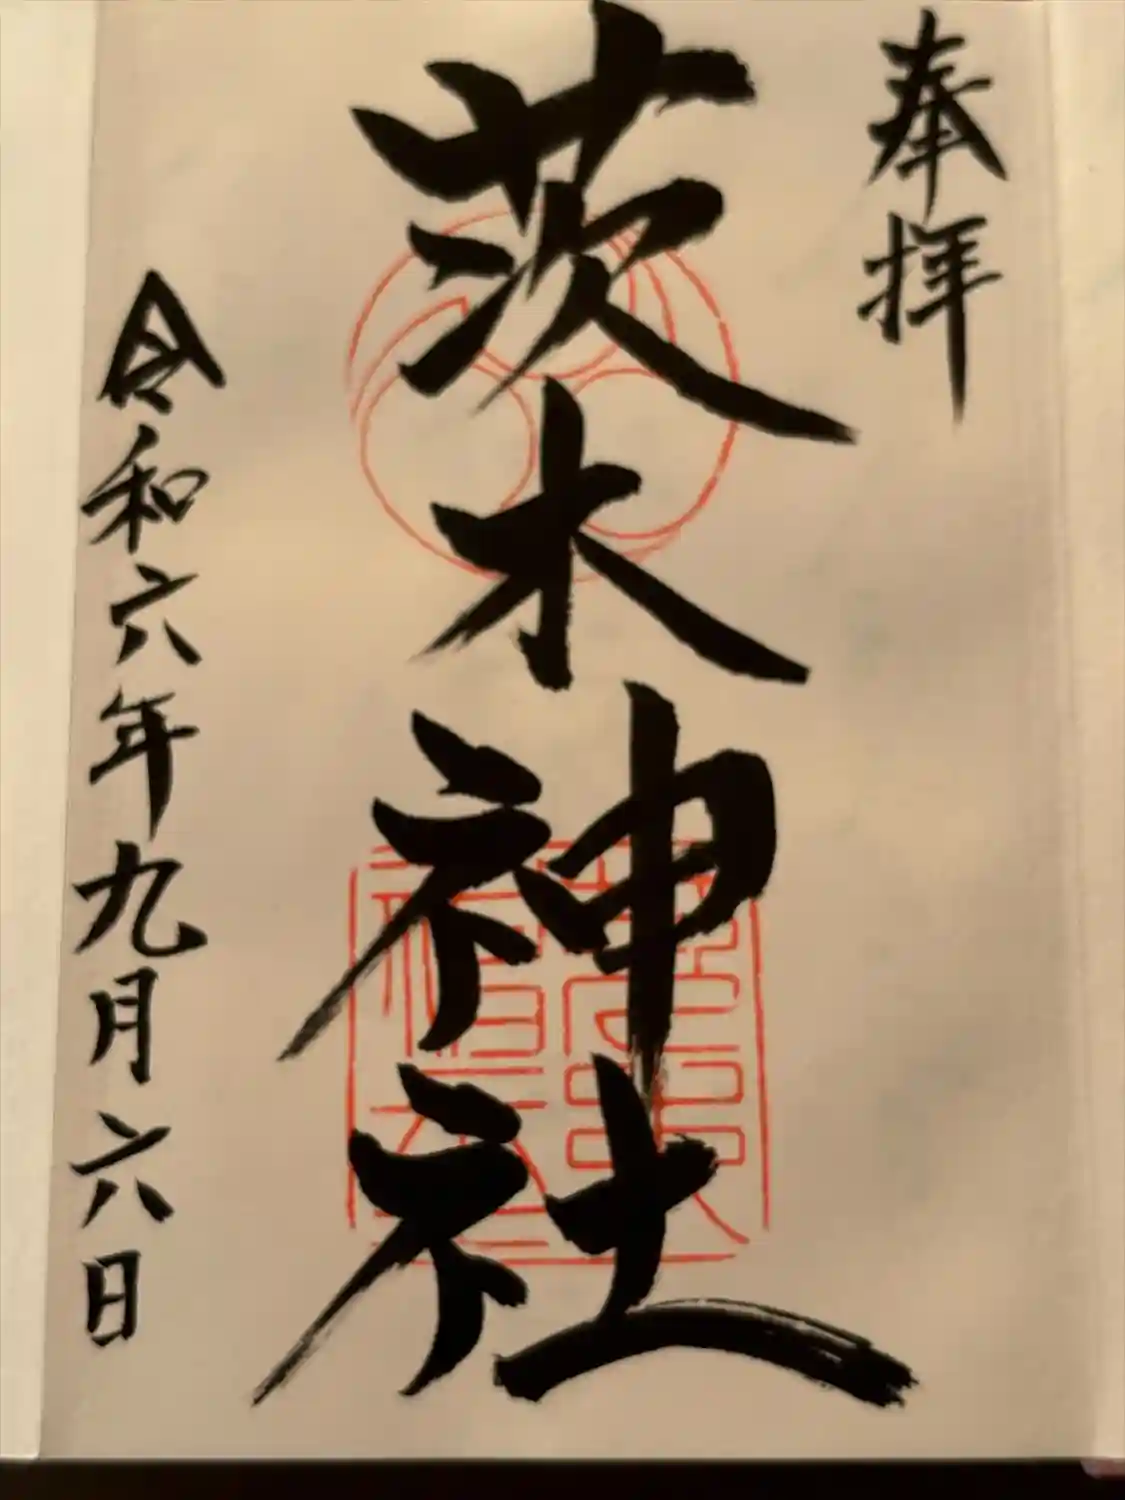 奉拝
茨木神社
令和六年九月六日